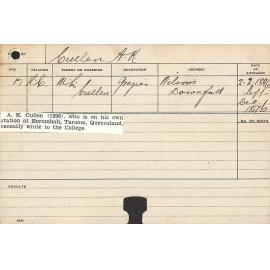 Cullen A. K.
AGE RELIGION PARENT OR GUARDIAN OCCUPATION ADDRESS DATE OF ENTRANCE
17 R.C. Cullen Grazier Wilsons Downfall 2.2.1896
left Dec 1896
NO. OF MONTHS
A. K. Cullen (1896), who is on his own
station at Eurombah, Taroom, Queensland,
recently wrote to the College.
RESULTS